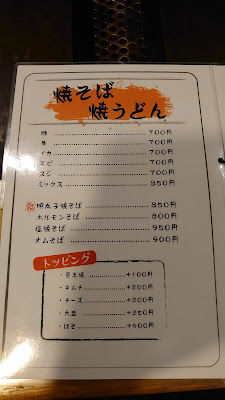 焼そば
焼うどん
豚 ………… 700円
牛 ………… 700円
イカ ………… 700円
エビ ………… 700円
スジ ………… 700円
ミックス ………… 850円
明太子焼そば ………… 850円
ホルモンそば ………… 800円
塩焼そば ………… 950円
オムそば ………… 900円
トッピング
・目玉焼 ………… +100円
・キムチ ………… +200円
・チーズ ………… +200円
・大盛 ………… +250円
・ほそ ………… +400円